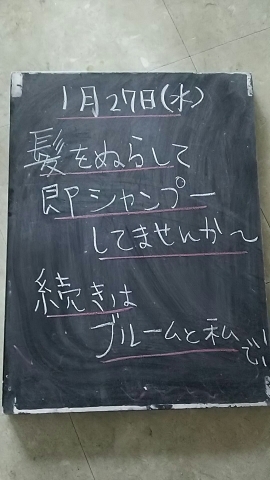 1月27日(水)
髪をぬらして
即シャンプー
してませんか〜
続きは
ブルームと私で!